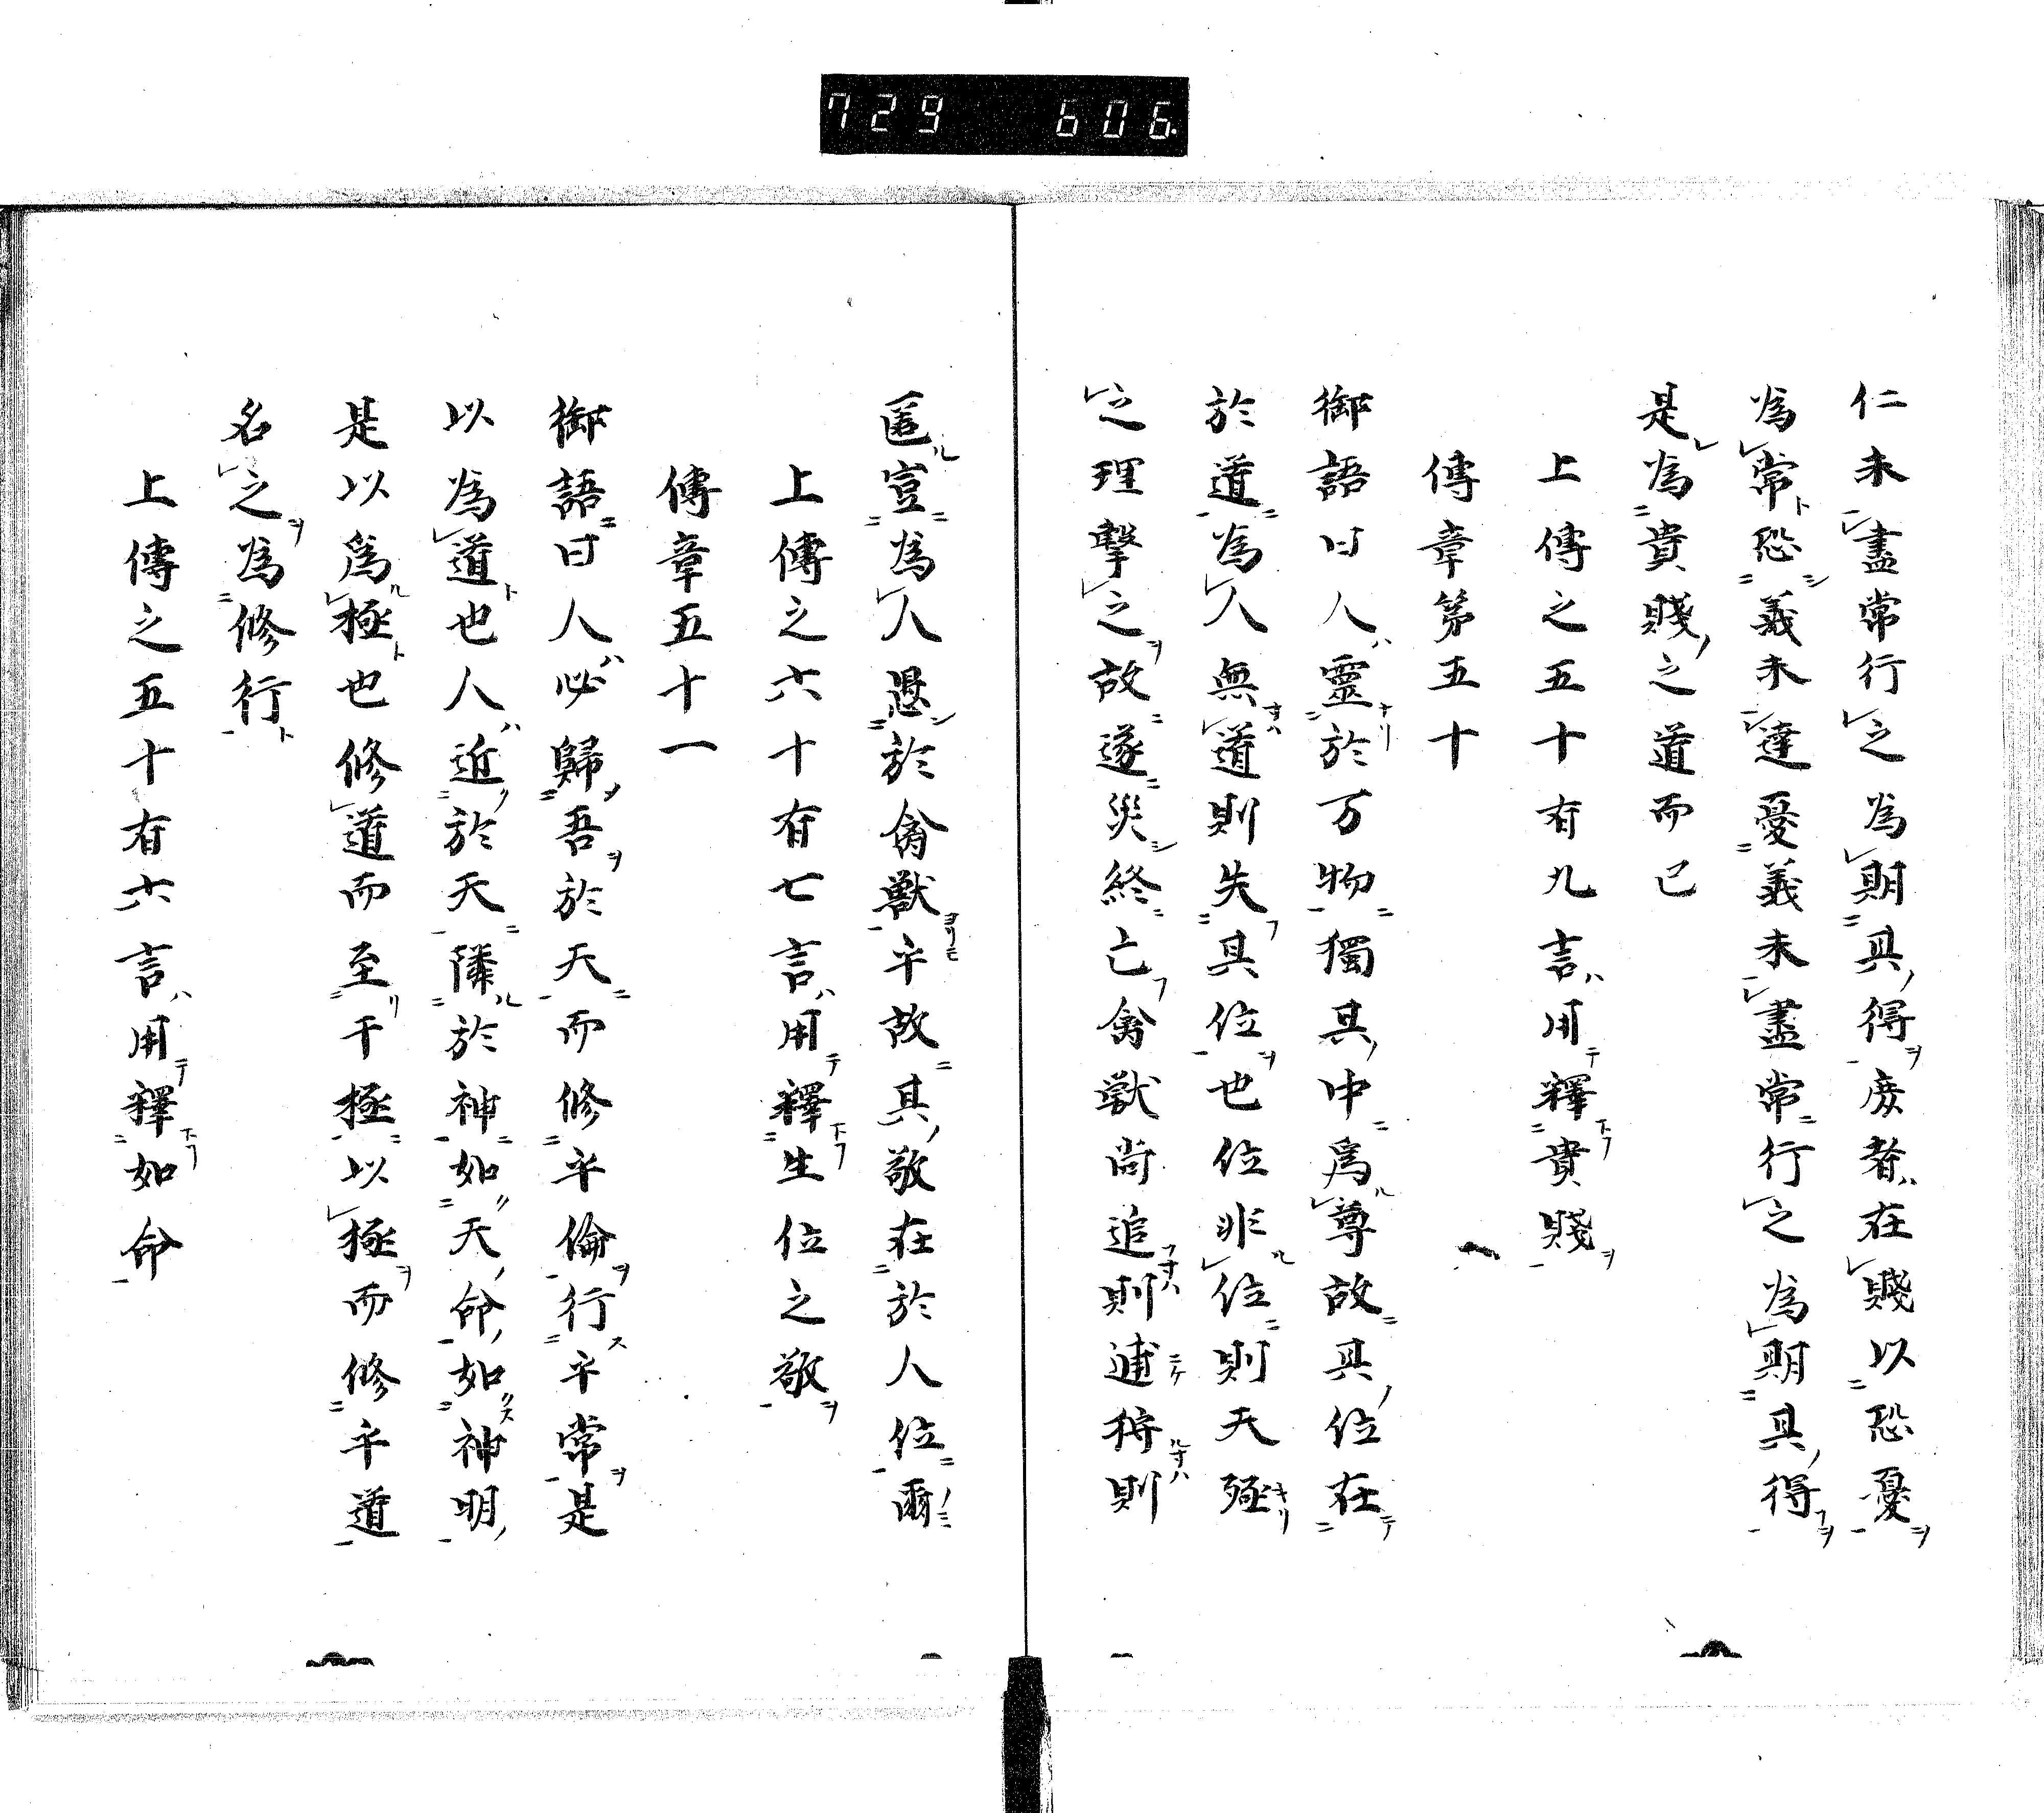 729 606
仁未盡常行之為期其得庶者在賤以恐憂
為常恐義未達憂義未盡常行之為期其得
是為貴賤之道而已
上傳之五十有九言用釋貴賤
傳章第五十
御語曰人靈於万物獨其中為尊故其位在
於道為人無道則失其位也位非位則天殛
之理擊之故遂災終亡禽獣尚追則逋狩則
匿豈為人愚於禽獣乎故其敬在於人位爾
上傳之六十有七言用釋生位之敬
傳章五十一
御語曰人必歸吾於天而修乎倫行乎常是
以為道也人近於天隣於神如天命如神明
是以為極也修道而至于極以極而修乎道
名之為修行
上傳之五十有六言用釋如命